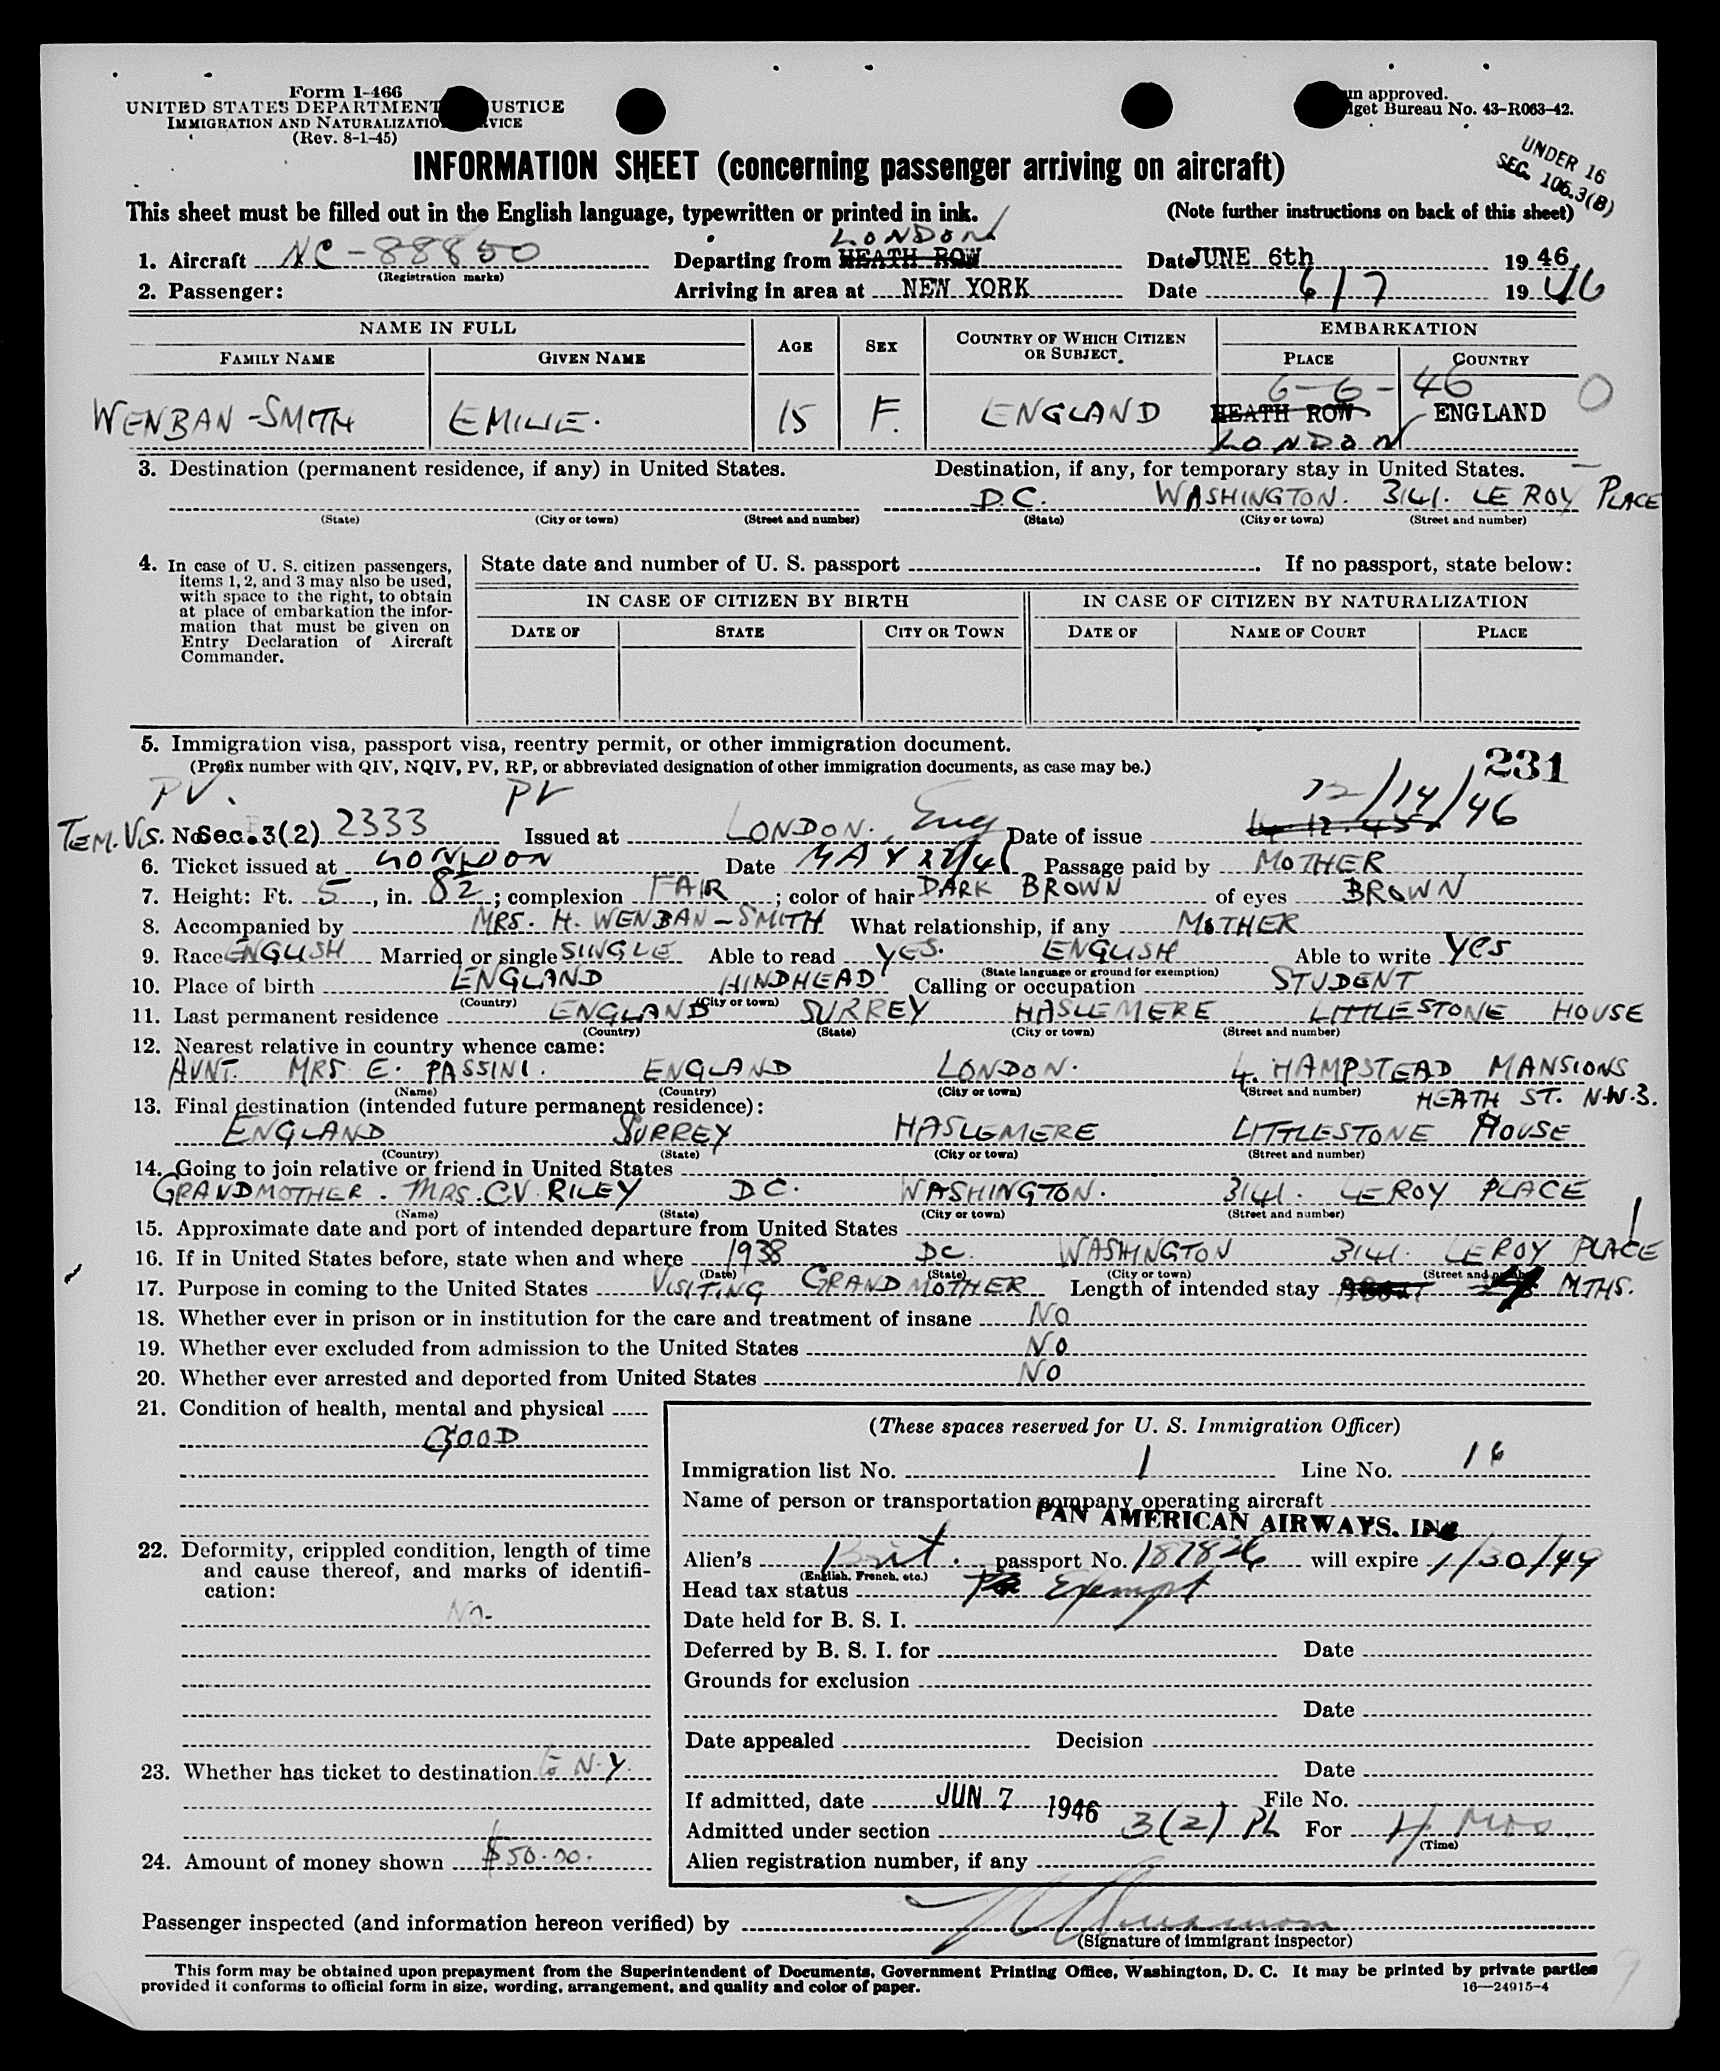 Form I-466
UNITED STATES DEPARTMENT USTICE
IMMIGRATION AND NATURALIZATIO VICE
(Rev. 8-1-45)
m approved.
get Bureau No. 43-R063-42.
UNDER 16
SEC. 106.3(B)
INFORMATION SHEET (concerning passenger arriving on aircraft)
This sheet must be filled out in the English language, typewritten or printed in ink.
(Note further instructions on back of this sheet)
LONDON
1. Aircraft NC-88850 Departing from HEATH ROW Date JUNE 6th 1946
(Registration marks)
2. Passenger: Arriving in area at NEW YORK Date 6/7 1946
NAME IN FULL AGE SEX COUNTRY OF WHICH CITIZEN OR SUBJECT. EMBARKATION
FAMILY NAME GIVEN NAME PLACE COUNTRY
6-6-46
WENBAN-SMITH EMILIE. 15 F. ENGLAND HEATH ROW ENGLAND O
LONDON
3. Destination (permanent residence, if any) in United States. Destination, if any, for temporary stay in United States.
D.C. WASHINGTON. 3141. LE ROY PLACE
(State) (City or town) (Street and number) (State) (City or town) (Street and number)
4. In case of U. S. citizen passengers, items 1, 2, and 3 may also be used, with space to the right, to obtain at place of embarkation the information that must be given on Entry Declaration of Aircraft Commander.
State date and number of U. S. passport . If no passport, state below:
IN CASE OF CITIZEN BY BIRTH IN CASE OF CITIZEN BY NATURALIZATION
DATE OF STATE CITY OR TOWN DATE OF NAME OF COURT PLACE
5. Immigration visa, passport visa, reentry permit, or other immigration document.
231
(Prefix number with QIV, NQIV, PV, RP, or abbreviated designation of other immigration documents, as case may be.)
PV. PV 12/14/46
TEM. VIS. No Sec. 3(2) 2333 Issued at LONDON., Eng Date of issue
6. Ticket issued at LONDON Date MAY Passage paid by MOTHER
7. Height: Ft. 5, in. 8½; complexion FAIR; color of hair DARK BROWN of eyes BROWN
8. Accompanied by MRS. H. WENBAN-SMITH What relationship, if any MOTHER
9. Race ENGLISH Married or single SINGLE Able to read YES. ENGLISH Able to write YES
(State language or ground for exemption)
10. Place of birth ENGLAND HINDHEAD Calling or occupation STUDENT
(Country) (City or town)
11. Last permanent residence ENGLAND SURREY HASLEMERE LITTLESTONE HOUSE
(Country) (State) (City or town) (Street and number)
12. Nearest relative in country whence came:
AUNT. MRS E. PASSINI. ENGLAND LONDON. 4. HAMPSTEAD MANSIONS
(Name) (Country) (City or town) (Street and number) HEATH ST. N.W.3.
13. Final destination (intended future permanent residence):
ENGLAND SURREY HASLEMERE LITTLESTONE HOUSE
(Country) (State) (City or town) (Street and number)
14. Going to join relative or friend in United States
GRANDMOTHER. MRS. C.V. RILEY D.C. WASHINGTON. 3141. LEROY PLACE
(Name) (State) (City or town) (Street and number)
15. Approximate date and port of intended departure from United States
16. If in United States before, state when and where 1938 DC. WASHINGTON 3141. LEROY PLACE
(Date) (State) (City or town) (Street and number)
17. Purpose in coming to the United States VISITING GRANDMOTHER Length of intended stay MTHS.
18. Whether ever in prison or in institution for the care and treatment of insane NO
19. Whether ever excluded from admission to the United States NO
20. Whether ever arrested and deported from United States NO
21. Condition of health, mental and physical
GOOD
22. Deformity, crippled condition, length of time and cause thereof, and marks of identification:
NO.
23. Whether has ticket to destination to N.Y.
24. Amount of money shown $50.00.
(These spaces reserved for U. S. Immigration Officer)
Immigration list No. 1 Line No. 16
Name of person or transportation company operating aircraft
PAN AMERICAN AIRWAYS, INC
Alien's Brit. passport No. 187826 will expire 1/30/49
(English, French, etc.)
Head tax status Exempt
Date held for B. S. I.
Deferred by B. S. I. for Date
Grounds for exclusion
Date
Date appealed Decision
Date
If admitted, date JUN 7 1946 File No.
Admitted under section 3(2) PL For 4 Mos.
(Time)
Alien registration number, if any
Passenger inspected (and information hereon verified) by
(Signature of immigrant inspector)
This form may be obtained upon prepayment from the Superintendent of Documents, Government Printing Office, Washington, D. C. It may be printed by private parties
provided it conforms to official form in size, wording, arrangement, and quality and color of paper.
16—24915-4